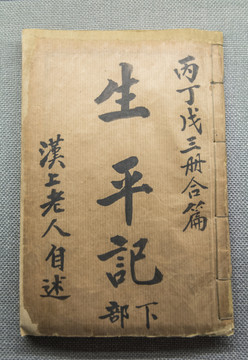 丙丁戊三册合篇
生平記
下部
漢上老人自述